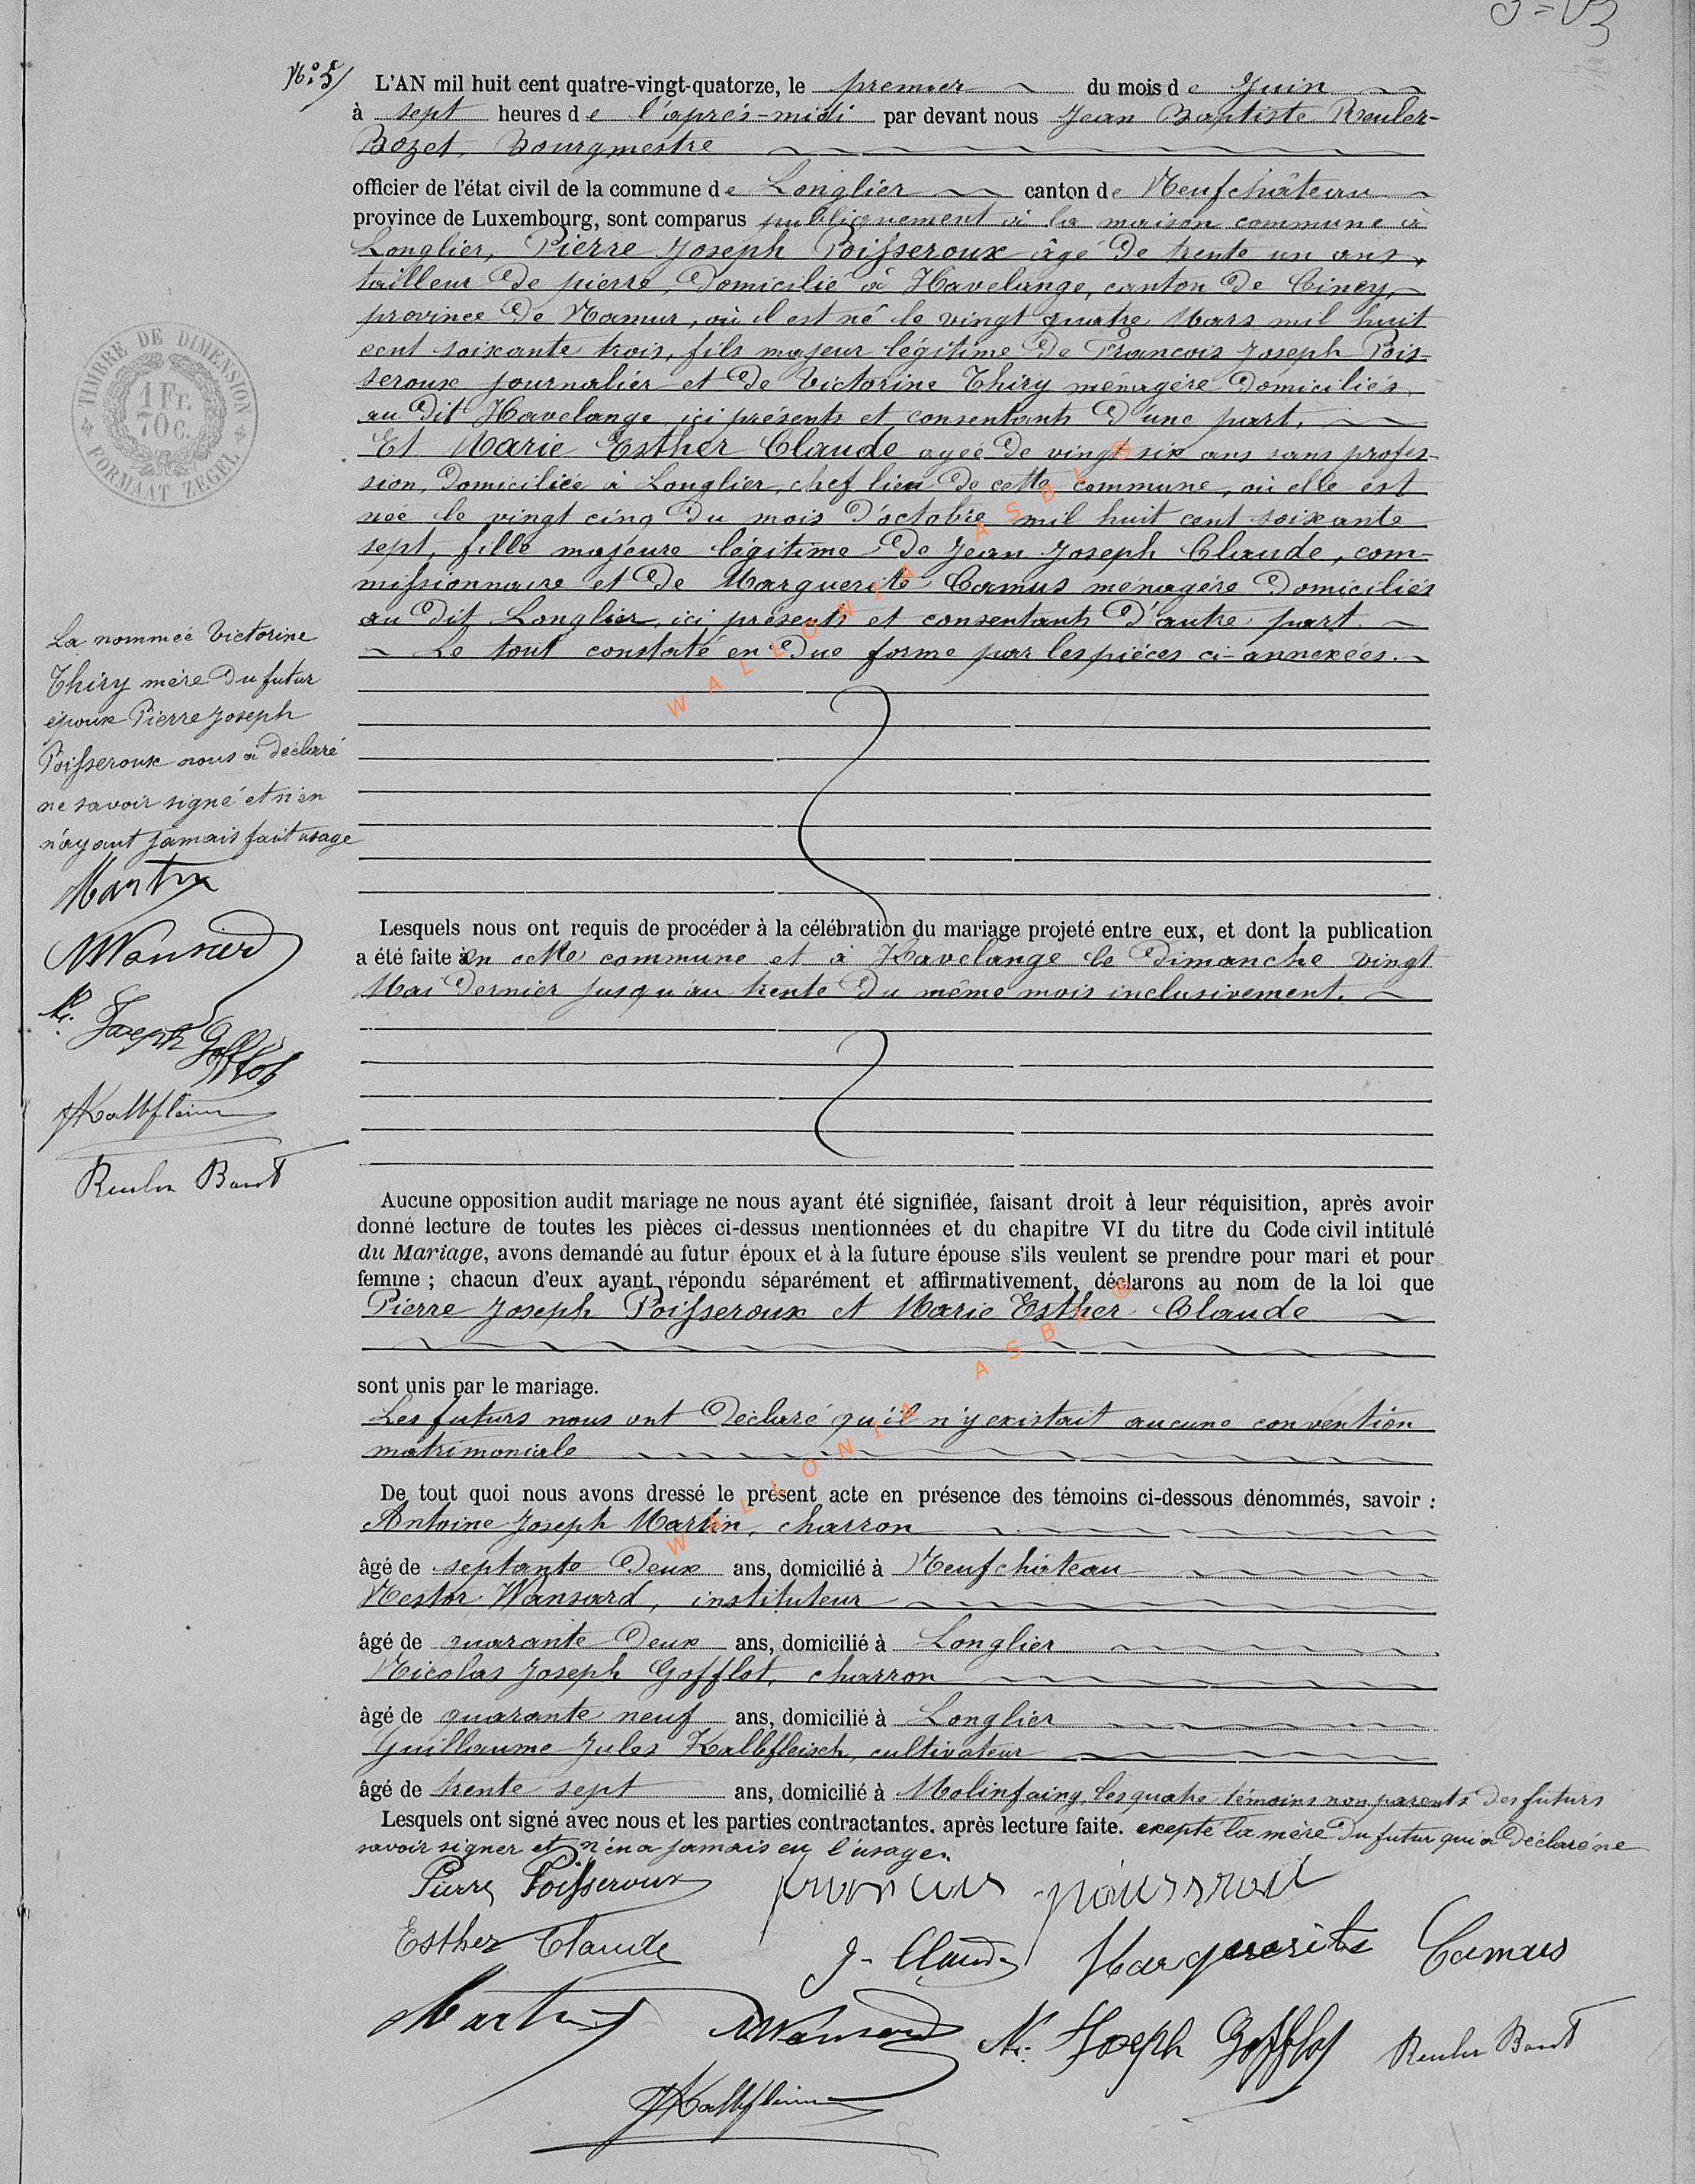 N° 5/
L'AN mil huit cent quatre-vingt-quatorze, le premier du mois de Juin
à sept heures de l'après-midi par devant nous Jean Baptiste Reuler-
Bozet, Bourgmestre
officier de l'état civil de la commune de Longlier canton de Neufchâteau
province de Luxembourg, sont comparus publiquement à la maison commune à
Longlier, Pierre Joseph Poisseroux âgé de trente un ans,
tailleur de pierre, domicilié à Havelange, canton de Ciney,
province de Namur, où il est né le vingt quatre Mars mil huit
cent soixante trois, fils majeur légitime de François Joseph Pois-
seroux journalier et de Victorine Thiry ménagère domiciliés
au dit Havelange, ici présents et consentants d'une part.
Et Marie Esther Claude agée de vingt six ans sans profes-
sion, domiciliée à Longlier, chef lieu de cette commune, où elle est
née le vingt cinq du mois d'octobre mil huit cent soixante
sept, fille majeure légitime de Jean Joseph Claude, com-
missionnaire et de Marguerite Camus ménagère domiciliés
au dit Longlier, ici présents et consentants d'autre part.
Le tout constaté en due forme par les pièces ci-annexées.
TIMBRE DE DIMENSION
1 Fr.
70 c.
FORMAAT ZEGEL
La nommée Victorine
Thiry mère du futur
époux Pierre Joseph
Poisseroux nous a déclaré
ne savoir signé et n'en
n'ayant jamais fait usage
Martin
NWansard
N. Joseph Gofflot
JKalbfleisch
Reuler Bozet
WALLONIA ASBL ®
Lesquels nous ont requis de procéder à la célébration du mariage projeté entre eux, et dont la publication
a été faite en cette commune et à Havelange le Dimanche vingt
Mai dernier jusqu'au trente du même mois inclusivement.
Aucune opposition audit mariage ne nous ayant été signifiée, faisant droit à leur réquisition, après avoir
donné lecture de toutes les pièces ci-dessus mentionnées et du chapitre VI du titre du Code civil intitulé
du Mariage, avons demandé au futur époux et à la future épouse s'ils veulent se prendre pour mari et pour
femme ; chacun d'eux ayant répondu séparément et affirmativement, déclarons au nom de la loi que
Pierre Joseph Poisseroux et Marie Esther Claude
sont unis par le mariage.
Les futurs nous ont déclaré qu'il n'y existait aucune convention
matrimoniale
WALLONIA ASBL ®
De tout quoi nous avons dressé le présent acte en présence des témoins ci-dessous dénommés, savoir :
Antoine Joseph Martin, charron
âgé de septante deux ans, domicilié à Neufchâteau
Nestor Wansard, instituteur
âgé de quarante deux ans, domicilié à Longlier
Nicolas Joseph Gofflot, charron
âgé de quarante neuf ans, domicilié à Longlier
Guillaume Jules Kalbfleisch, cultivateur
âgé de trente sept ans, domicilié à Molinfaing, les quatre témoins non parents des futurs
Lesquels ont signé avec nous et les parties contractantes, après lecture faite. excepté la mère du futur qui a déclaré ne
savoir signer et n'en a jamais eu l'usage.
Pierre Poisseroux
Esther Claude J. Claude Marguerite Camus
Martin NWansard N. Joseph Gofflot Reuler Bozet
JKalbfleisch